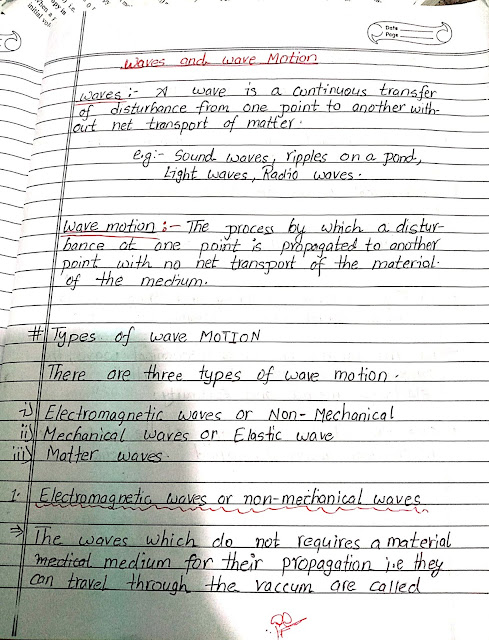 Date
Page
Waves and wave Motion
Waves :- A wave is a continuous transfer
of disturbance from one point to another with-
out net transport of matter.
e.g:- Sound waves, ripples on a pond,
Light waves, Radio waves.
Wave motion :- The process by which a distur-
bance at one point is propagated to another
point with no net transport of the material
of the medium.
# Types of wave MOTION
There are three types of wave motion.
i) Electromagnetic waves or Non-Mechanical
ii) Mechanical waves or Elastic wave
iii) Matter waves.
1. Electromagnetic waves or non-mechanical waves
⇒ The waves which do not requires a material
medical medium for their propagation i.e they
can travel through the vaccum are called